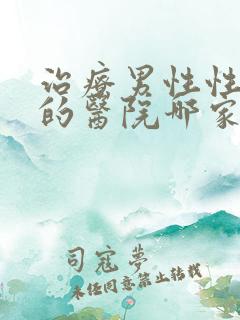 治療男性性
的醫院哪家
司寇夢
未经同意禁止转载